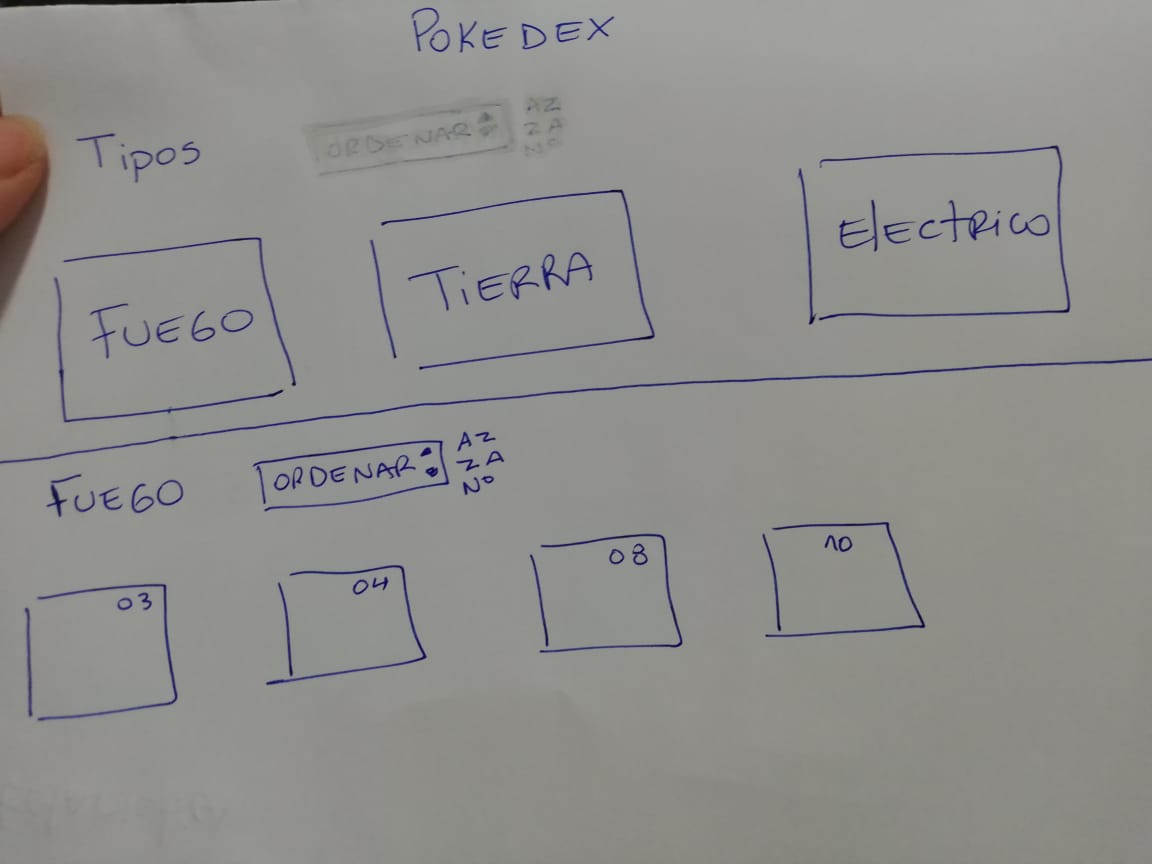 POKEDEX
Tipos
ORDENAR
AZ
ZA
Nº
FUEGO
TiERRA
ElEctRico
FUEGO
ORDENAR
AZ
ZA
Nº
03
04
08
10